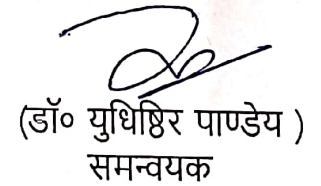 (डॉ० युधिष्ठिर पाण्डेय )
समन्वयक